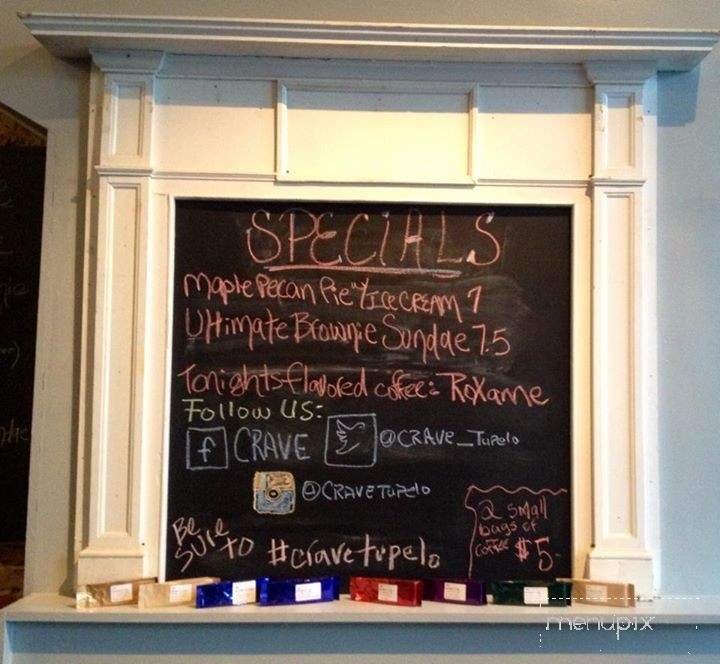 SPECIALS
Maple Pecan Pie w/ Ice CREAM 7
Ultimate Brownie Sundae 7.5
Tonights flavored coffee: Roxanne
Follow US:
f CRAVE @CRAVE_Tupelo
@CRAVETUPELO
Be SURE TO #cravetupelo
2 small
bags of
coffee $5
menupix